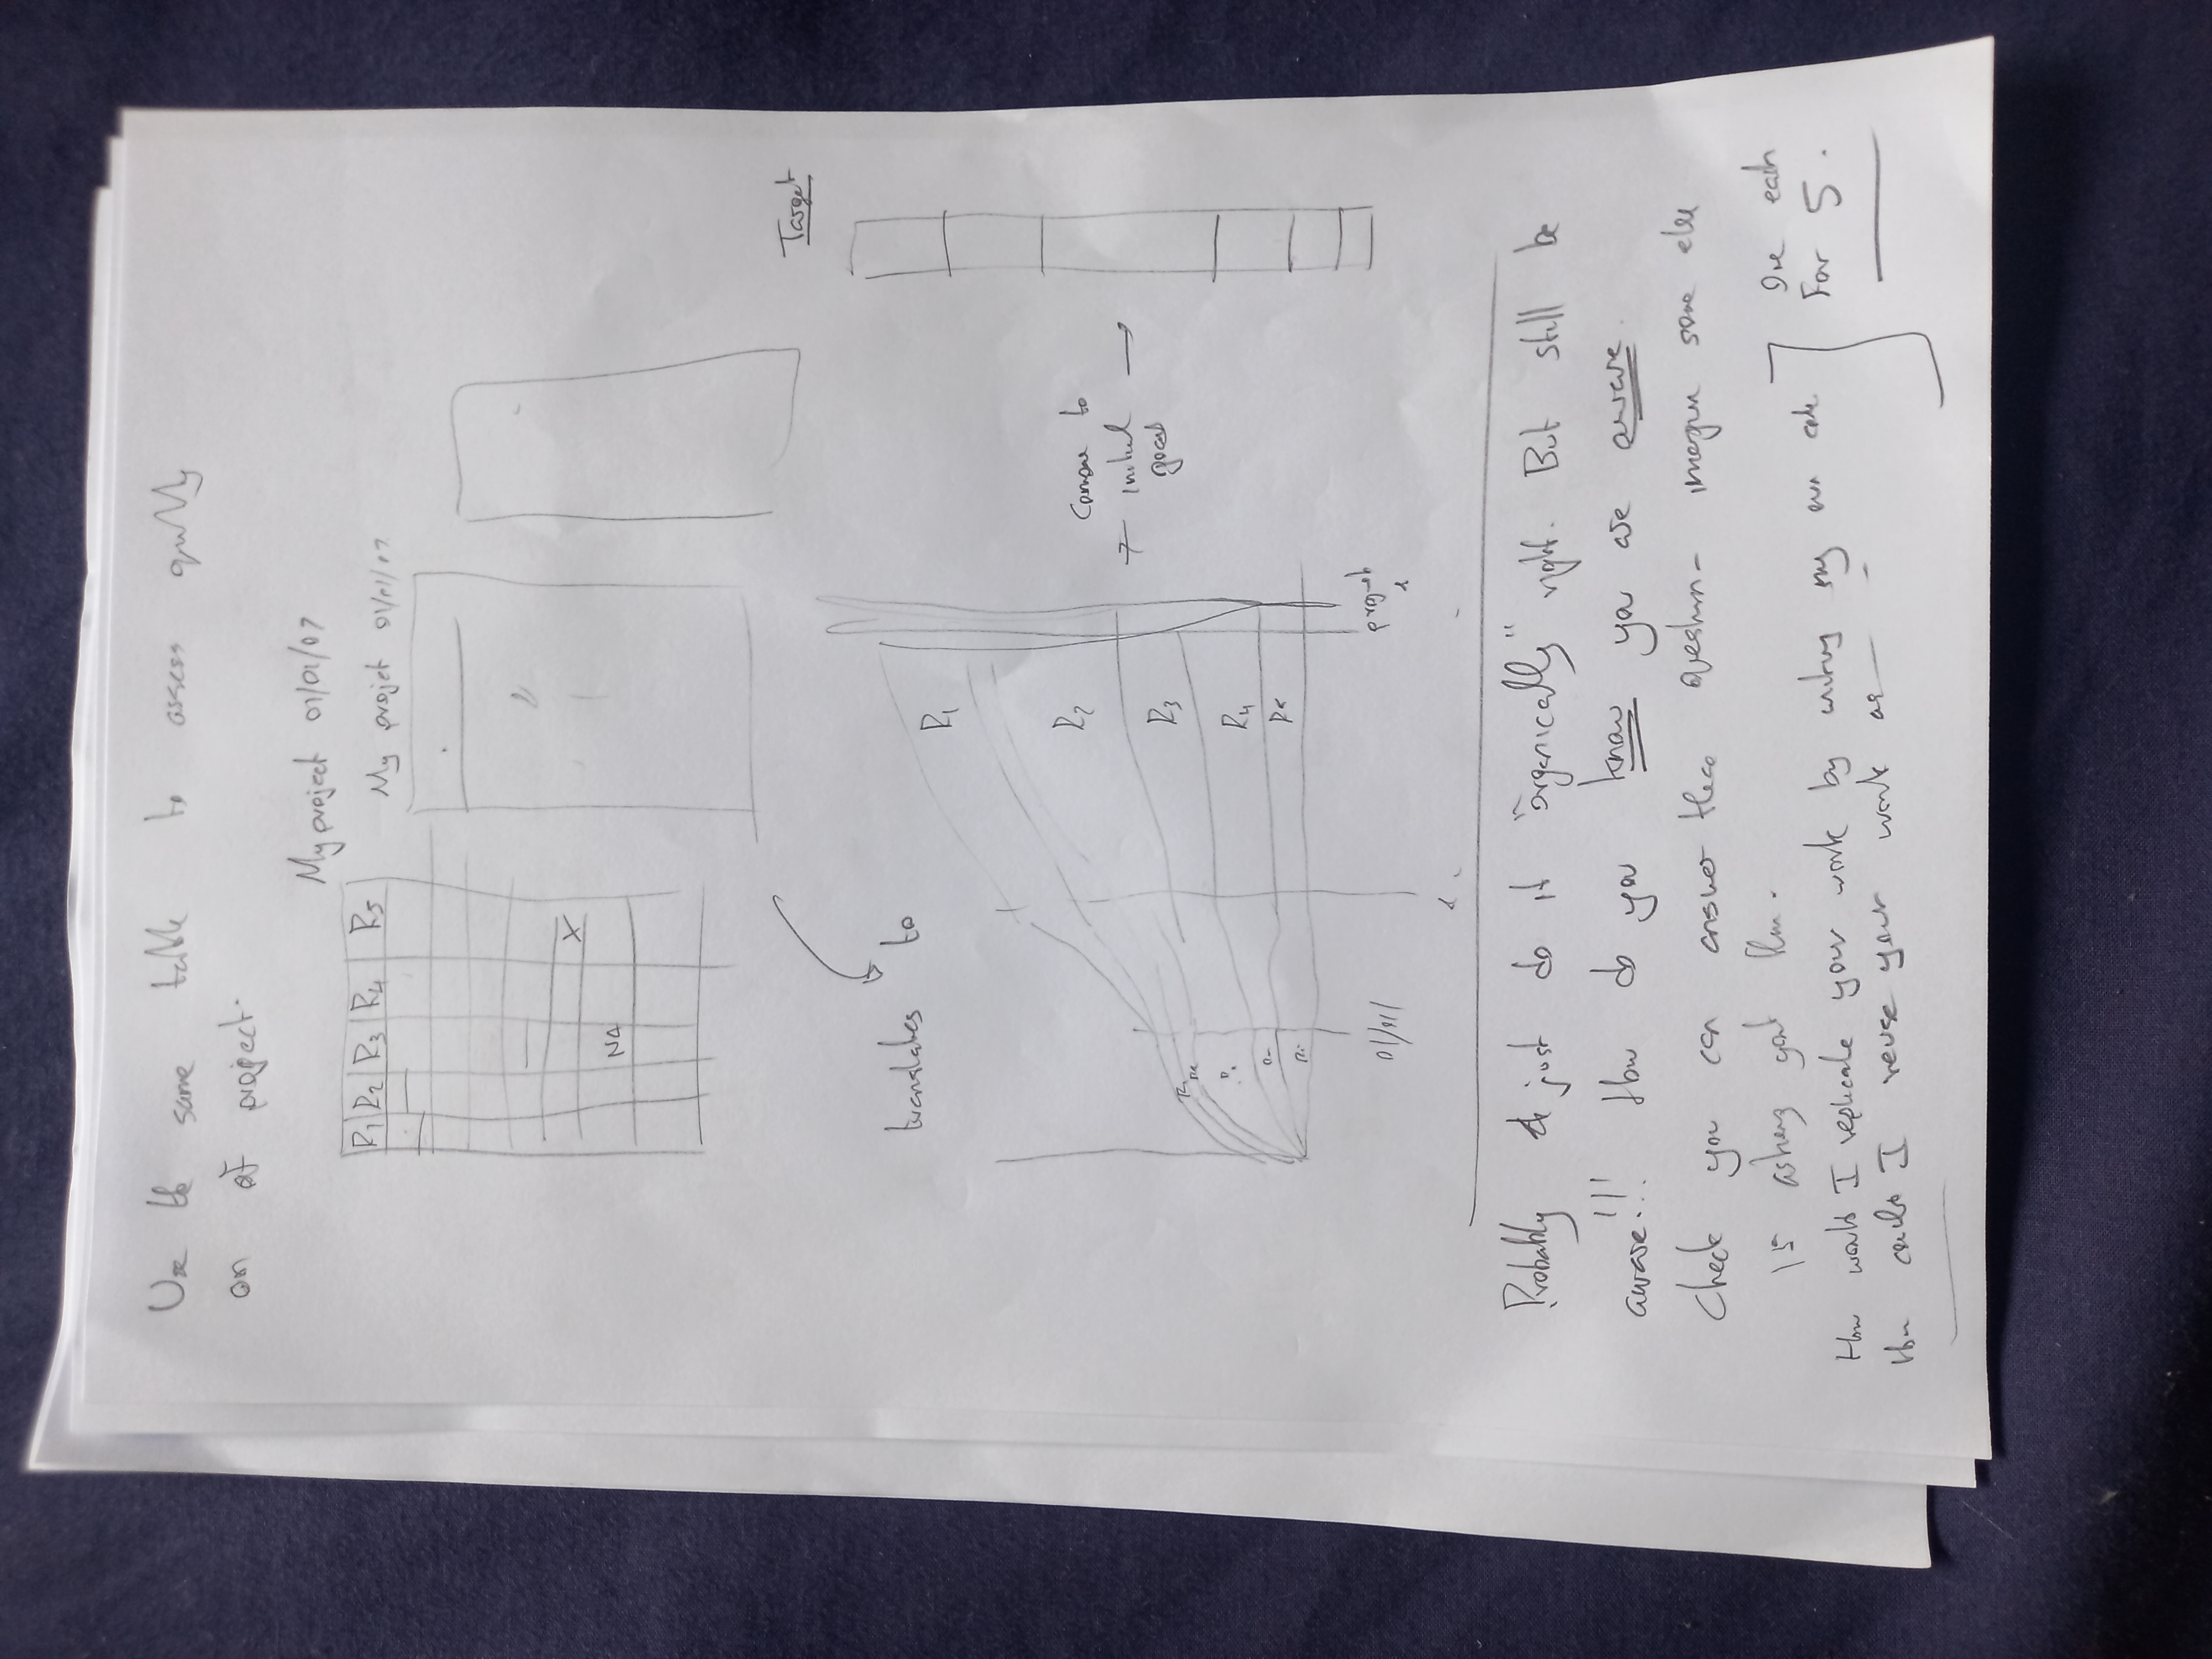 Use the same table to assess quality
on of project.
My project 01/01/07
R1 R2 R3 R4 R5
My projet 01/01/07
X
NA
Target
translates to
R1
R2
R3
R4
R5
Compare to
initial
goal
01/01/
Probably just do it "organically" right. But still be
aware!!! How do you know you are aware.
Check you can answer these question - imagine some else
is asking you them.
How would I replicate your work by writing my own code
How could I reuse your work as
One each
For 5.